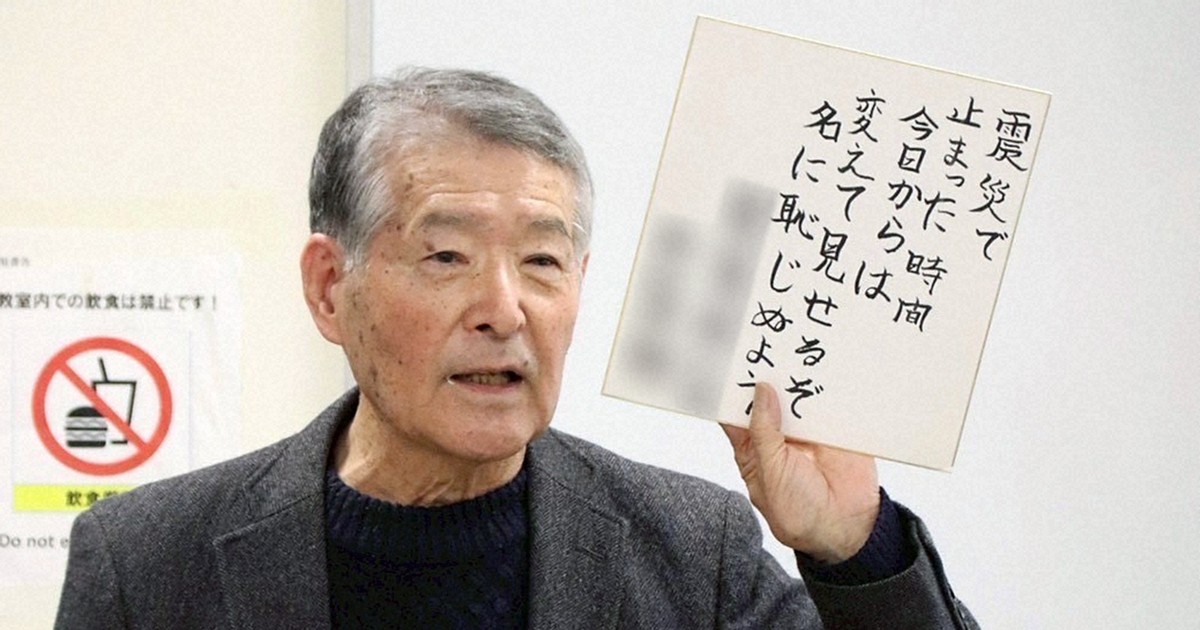 震災で
止まった時間
今日からは
変えて見せるぞ
名に恥じぬよう
教室内での飲食は禁止です！
飲食
Do not e